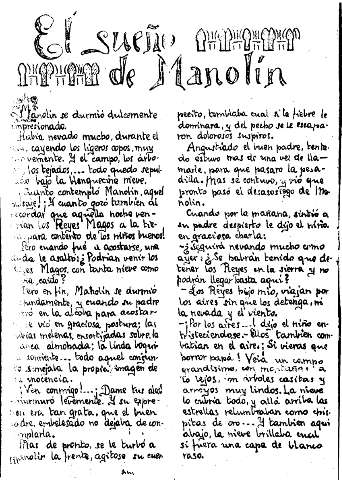 El sueño
de Manolín
Manolín se durmió dulcemente
impresionado.
Había nevado mucho, durante el
cayendo los ligeros copos, muy
vemente. Y el campo, los árbo
los tejados,... todo quedó sepul
bajo la blanquecina nieve.
Cuánto contempló Manolín, aquel
¡Y cuánto gozó también al
cordar que aquella noche ven
rían los Reyes Magos a la tie
para contento de los niños buenos!
Pero cuando fué a acostarse, una
duda le asaltó: ¿Podrían venir los
Reyes Magos, con tanta nieve como
caído?
Pero en fin, Manolín se durmió
fundamente, y cuando su padre
entró en la alcoba para acostar
le vió en graciosa postura; las
melenas, ensortijadas sobre la
almohada; la linda boqui
sonriente... todo aquel conjun
semejaba la propia imagen de
inocencia.
¡Ven conmigo!... ¡Dame tus alas!
murmuró levemente. Y su expre
era tan grata, que el buen
padre, embelesado no dejaba de con-
templarla.
Mas de pronto, se le turbó a
Manolín la frente, agitóse su cuer
pecito, temblaba cual si la fiebre le
dominara, y del pecho se le escapa-
ron dolorosos suspiros.
Angustiado el buen padre, tenta-
do estuvo más de una vez de lla-
marle, para que pasara la pesa-
dilla. Mas se contuvo, y vió que
pronto pasó el desasosiego de Ma-
nolín.
Cuando por la mañana, sintió a
su padre despierto le dijo el niño
en graciosa charla:
-¿Seguirá nevando mucho como
ayer? ¿Se habrán tenido que de-
tener los Reyes en la sierra y no
podrán llegar hasta aquí?
-Los Reyes hijo mío, viajan por
los aires sin que los detenga, ni
la nevada y el viento.
-¡Por los aires...! dijo el niño en-
tristeciéndose- Ellos también com-
batían en el aire. ¡Si vieras que
horror papá! Veía un campo
grandísimo, con montañas a
lo lejos, con árboles casitas y
arroyos muy lindos. La nieve
lo cubría todo, y allá arriba las
estrellas relumbraban como chis-
pitas de oro... Y también aquí
abajo, la nieve brillaba cual
si fuera una capa de blanco
raso.